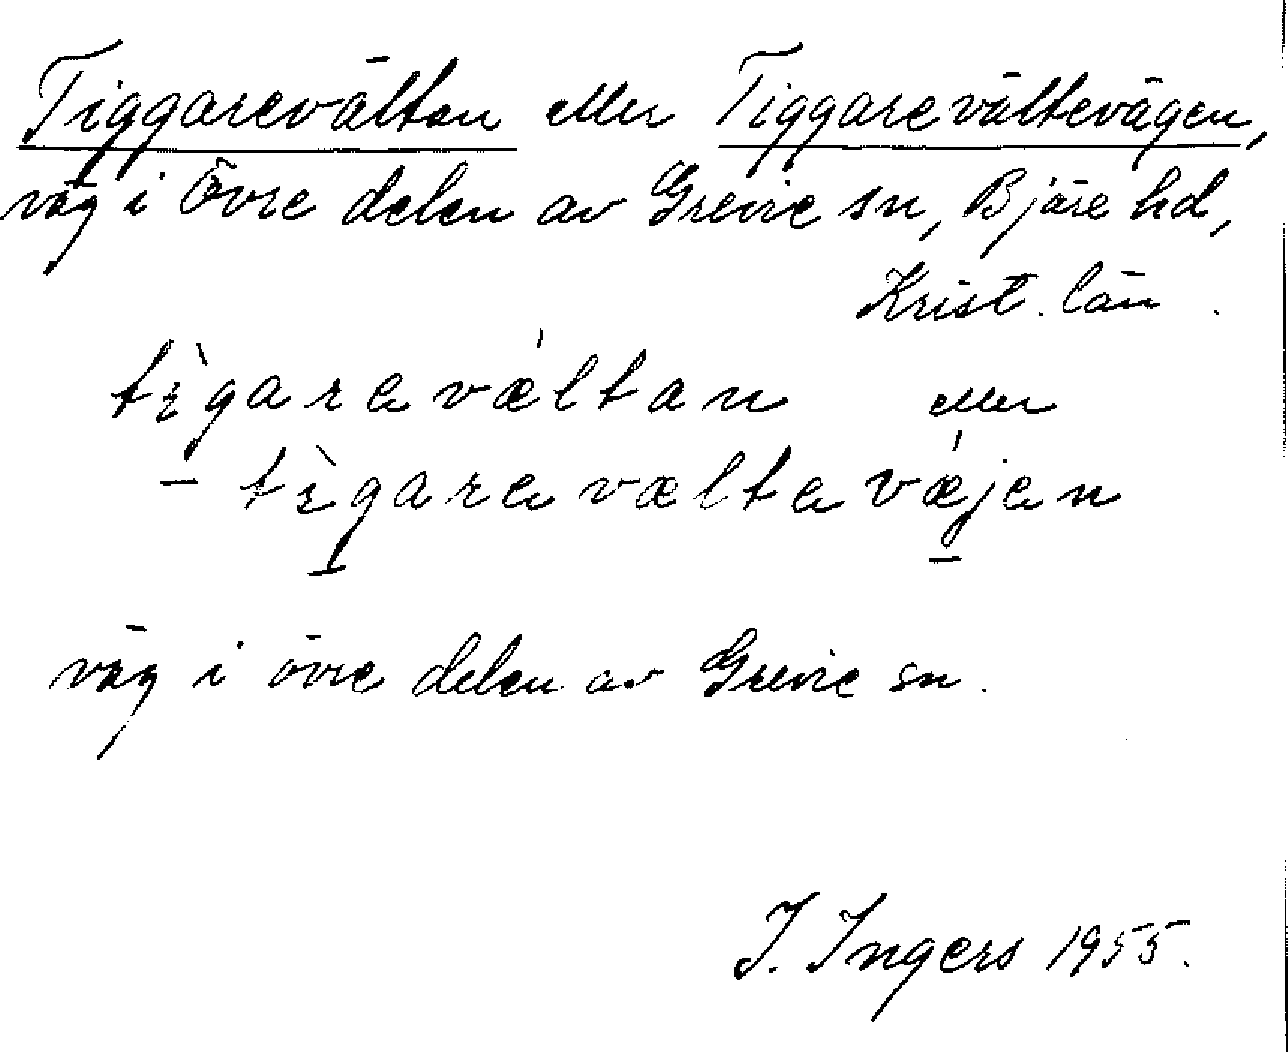 Tiggarevältan eller Tiggarevältevägen,
väg i Övre delen av Grevie sn, Bjäre hd,
Krist. län.
tìgarevǽltan eller
- tìgareværltevǽjen
väg i övre delen av Grevie sn.
I. Ingers 1955.